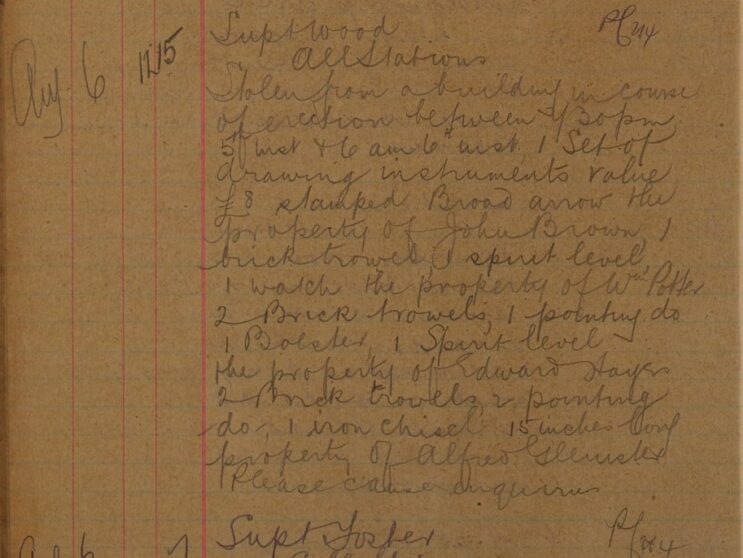 Supt Wood PC 274
Aug. 6 12.15 All Stations
Stolen from a building in course
of erection between 7/30 pm
5th inst & 6 am 6th inst, 1 Set of
drawing instruments value
£8 stamped Broad arrow the
property of John Brown, 1
brick trowel, 1 spirit level,
1 watch the property of Wm Potter
2 Brick trowels, 1 pointing do
1 Bolster, 1 Spirit level
the property of Edward Hayes
2 Brick trowels, 2 pointing
do, 1 iron chisel 15 inches long
property of Alfred Glenister
Please cause enquiries
Supt Foster